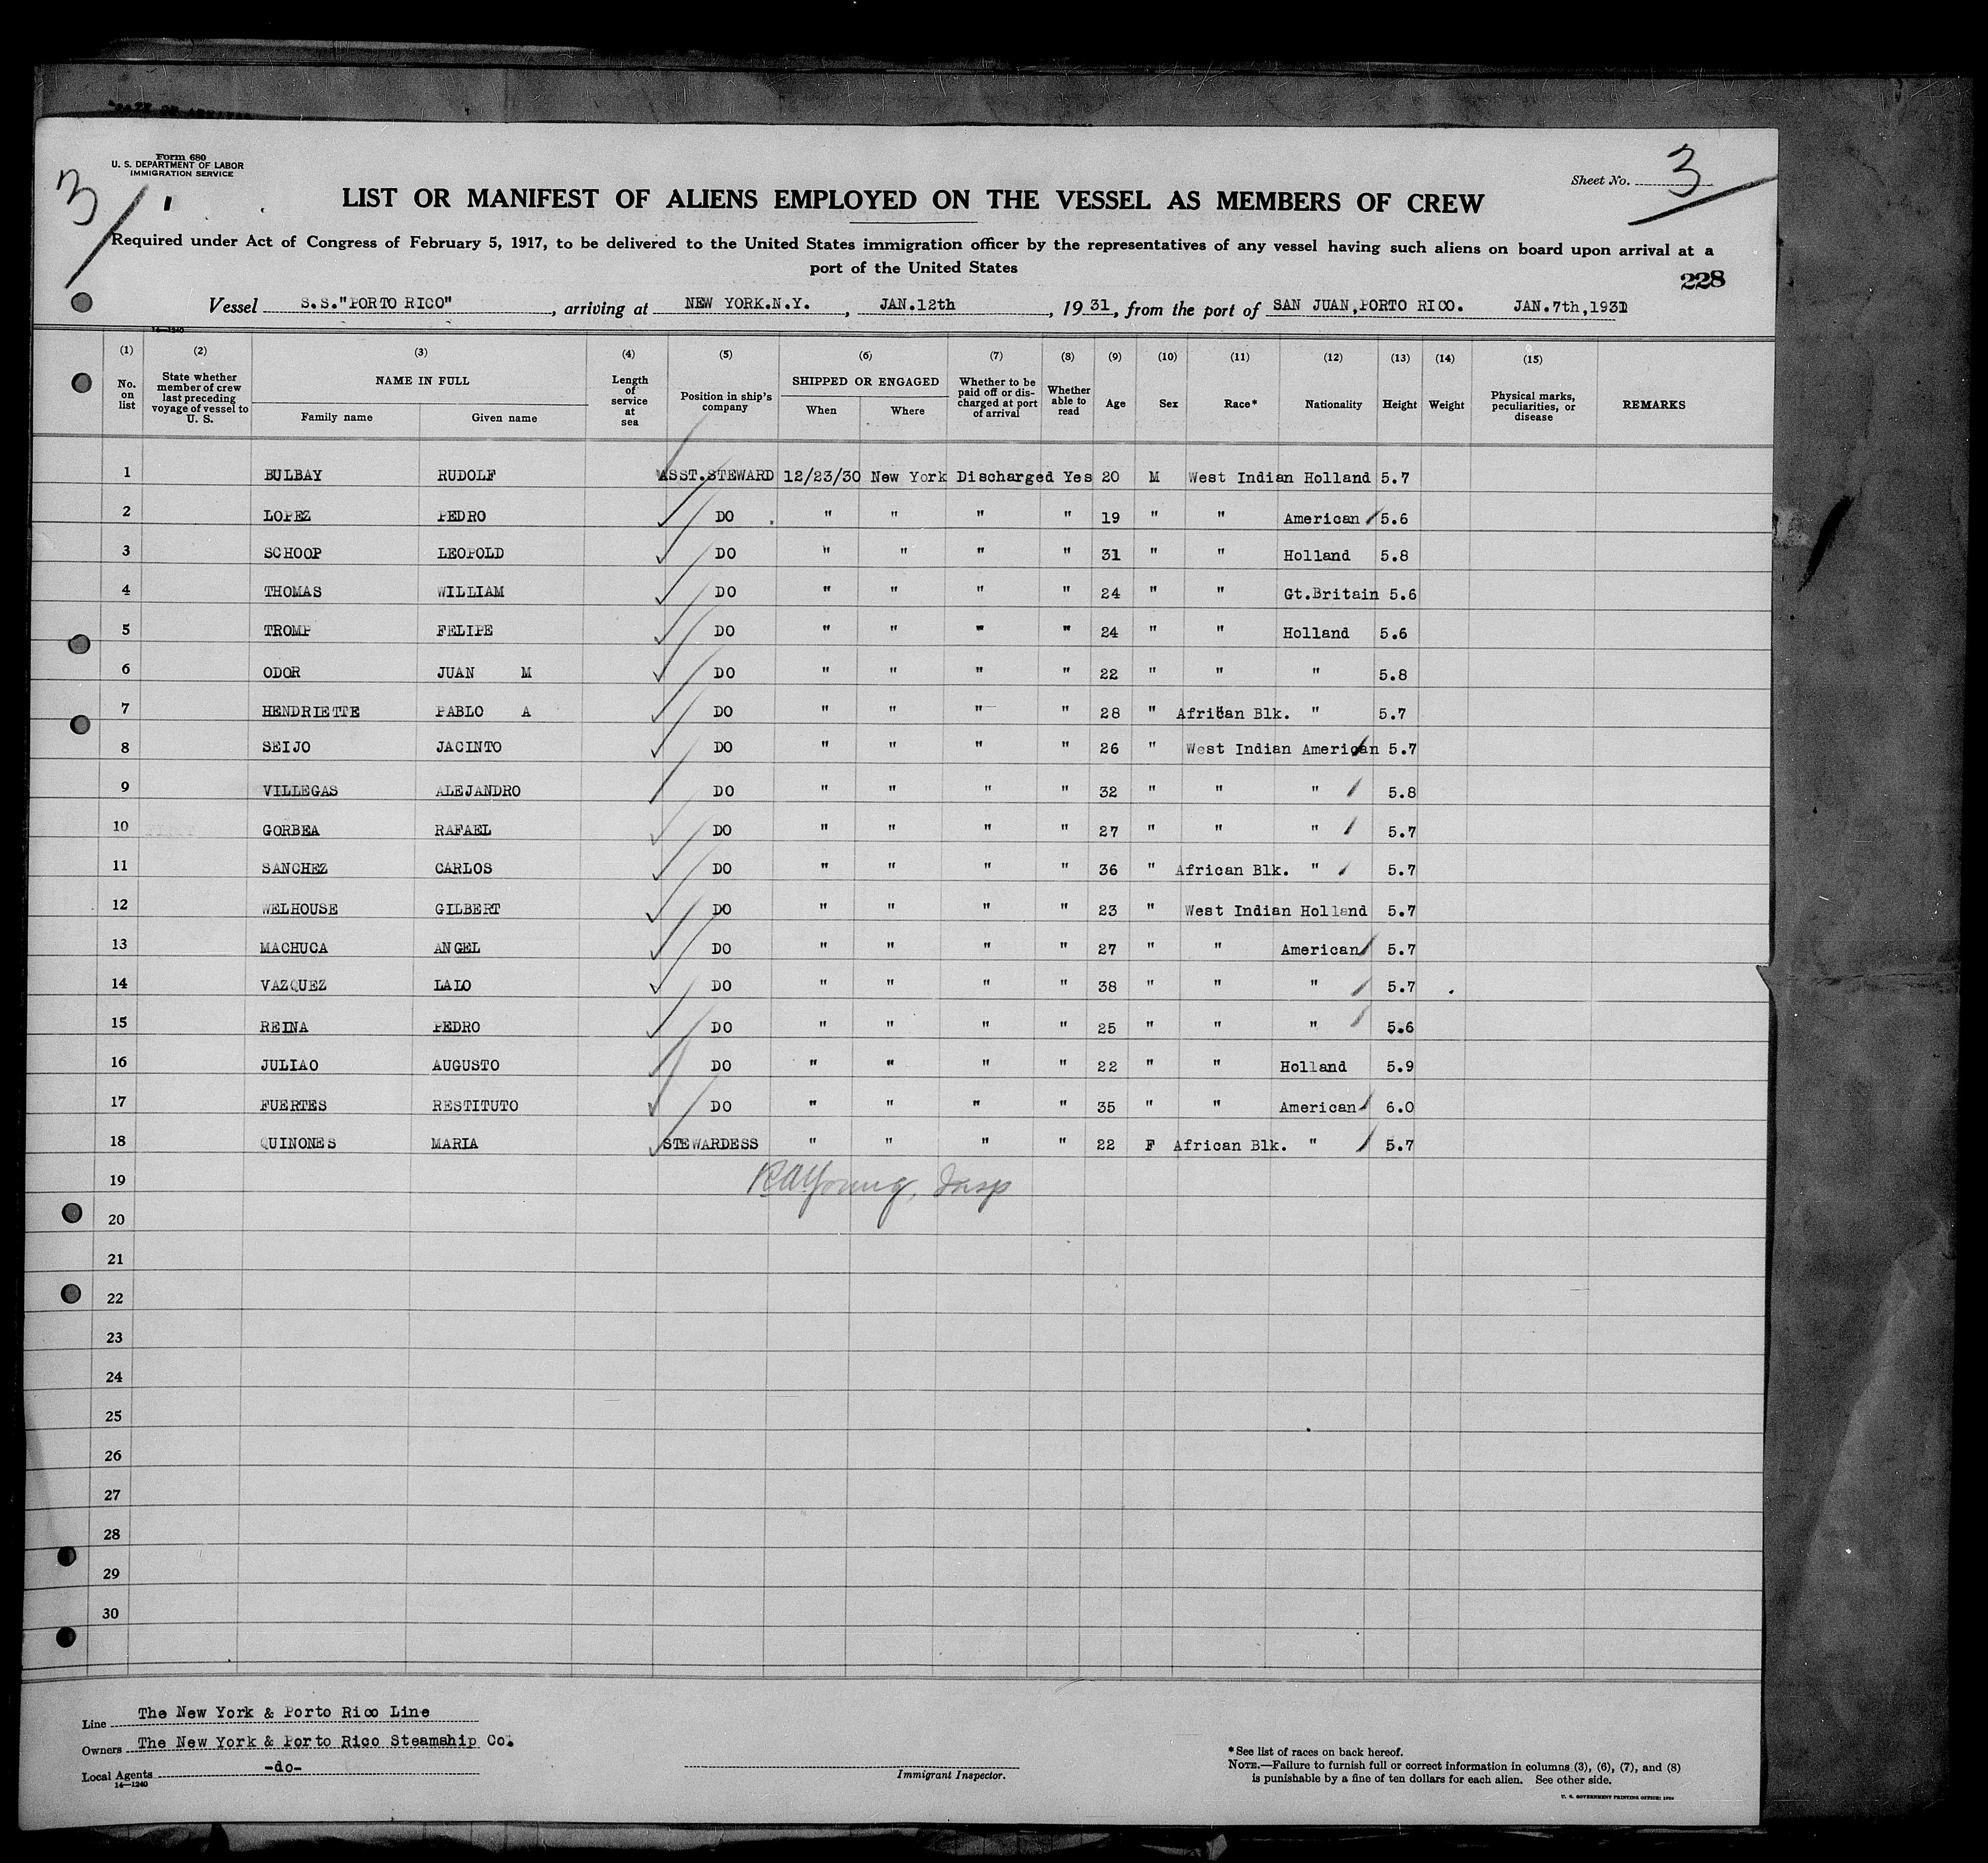 Form 680
U. S. DEPARTMENT OF LABOR
IMMIGRATION SERVICE
3
Sheet No. 3
LIST OR MANIFEST OF ALIENS EMPLOYED ON THE VESSEL AS MEMBERS OF CREW
Required under Act of Congress of February 5, 1917, to be delivered to the United States immigration officer by the representatives of any vessel having such aliens on board upon arrival at a
port of the United States
228
Vessel S.S."PORTO RICO", arriving at NEW YORK.N.Y., JAN.12th, 1931, from the port of SAN JUAN,PORTO RICO. JAN.7th,1931
14—1240
(1) (2) (3) (4) (5) (6) (7) (8) (9) (10) (11) (12) (13) (14) (15)
No. on list | State whether member of crew last preceding voyage of vessel to U. S. | NAME IN FULL | Family name | Given name | Length of service at sea | Position in ship's company | SHIPPED OR ENGAGED | When | Where | Whether to be paid off or discharged at port of arrival | Whether able to read | Age | Sex | Race* | Nationality | Height | Weight | Physical marks, peculiarities, or disease | REMARKS
1 BULBAY RUDOLF ASST.STEWARD 12/23/30 New York Discharged Yes 20 M West Indian Holland 5.7
2 LOPEZ PEDRO DO " " " " 19 " " American 5.6
3 SCHOOP LEOPOLD DO " " " " 31 " " Holland 5.8
4 THOMAS WILLIAM DO " " " " 24 " " Gt.Britain 5.6
5 TROMP FELIPE DO " " " " 24 " " Holland 5.6
6 ODOR JUAN M DO " " " " 22 " " " 5.8
7 HENDRIETTE PABLO A DO " " " " 28 " African Blk. " 5.7
8 SEIJO JACINTO DO " " " " 26 " West Indian American 5.7
9 VILLEGAS ALEJANDRO DO " " " " 32 " " " 5.8
10 GORBEA RAFAEL DO " " " " 27 " " " 5.7
11 SANCHEZ CARLOS DO " " " " 36 " African Blk. " 5.7
12 WELHOUSE GILBERT DO " " " " 23 " West Indian Holland 5.7
13 MACHUCA ANGEL DO " " " " 27 " " American 5.7
14 VAZQUEZ LALO DO " " " " 38 " " " 5.7
15 REINA PEDRO DO " " " " 25 " " " 5.6
16 JULIAO AUGUSTO DO " " " " 22 " " Holland 5.9
17 FUERTES RESTITUTO DO " " " " 35 " " American 6.0
18 QUINONES MARIA STEWARDESS " " " " 22 F African Blk. " 5.7
19 RAYoung, Insp
20
21
22
23
24
25
26
27
28
29
30
Line The New York & Porto Rico Line
Owners The New York & Porto Rico Steamship Co.
Local Agents -do-
14—1240
Immigrant Inspector.
*See list of races on back hereof.
NOTE.—Failure to furnish full or correct information in columns (3), (6), (7), and (8)
is punishable by a fine of ten dollars for each alien. See other side.